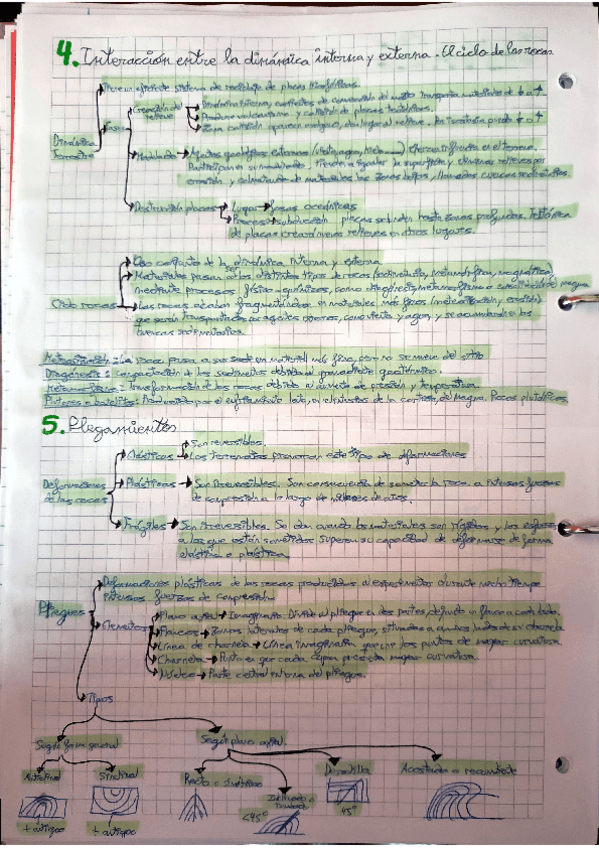 4. Interacción entre la dinámica interna y externa. El ciclo de las rocas
Dinámica terrestre
Tiene un eficiente sistema de reciclaje de placas litosféricas.
Fases
Creación del relieve
Dinámica interna, corrientes de convección del manto transporta materiales de
Produce vulcanismo y colisión de placas tectónicas.
Zona colisión aparecen
Modelado
Agentes geológicos externos (viento, agua, hielo...) ejercen influencia en el terreno.
Participan en su modelado, tienden a igualar la superficie y eliminar relieves por
erosión y colmatación de materiales las zonas bajas, llamadas cuencas sedimentarias.
Destrucción placas
Lugar
fosas oceánicas
Proceso
subducción
placas se hunden hasta zonas profundas. Tectónica
de placas creará nuevos relieves en otros lugares.
Ciclo rocas
conjunta de la dinámica interna y externa
Materiales pasan de los distintos tipos de rocas (sedimentaria, metamórfica, magmática)
mediante procesos físico-químicos, como diagénesis, metamorfismo o cristalización del magma
Las rocas acaban fragmentándose en materiales más finos (meteorización y erosión)
que serán transportados por agentes externos, como viento y agua, y se acumularán en las
cuencas sedimentarias.
Meteorización = La roca pasa a ser sedimento, material más fino, pero no se mueve del sitio
Diagénesis: compactación de los sedimentos debido al
Metamorfismo = transformación de las rocas debido al aumento de presión y temperatura.
Plutones o batolitos: Producido por el enfriamiento lento, en el interior de la corteza, de magma. Rocas plutónicas.
5. Plegamientos
Deformaciones de las rocas
Elásticas
Son reversibles.
Los terremotos provocan este tipo de deformaciones
Plásticas
Son irreversibles. Son consecuencia de someter la roca a intensas fuerzas
de compresión a lo largo de millones de años.
Frágiles
Son irreversibles. Se dan cuando los materiales son rígidos y los esfuerzos
a los que están sometidos superan su capacidad de deformarse de forma
elástica o plástica.
Pliegues
Deformaciones plásticas de las rocas producidas al experimentar durante mucho tiempo
intensas fuerzas de compresión
Elementos
Plano axial
Imaginario. Divide al pliegue en dos partes, dejando un flanco a cada lado.
Flancos
Zonas laterales de cada pliegue, situadas a ambos lados de su charnela
Línea de charnela
Línea imaginaria que une los puntos de mayor curvatura
Charnela
Punto en que cada capa presenta mayor curvatura
Núcleo
Parte central interna del pliegue.
Tipos
Según forma general
Según plano axial.
Anticlinal
Sinclinal
Recto o simétrico
Inclinado o
De rodilla
Acostado o recumbente
<45°
45°
+ antiguo
+ antiguo